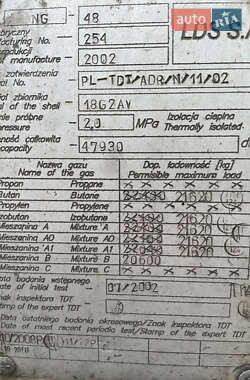 AUTO RIA
NG - 48
LDS S.A
bryczny
facturing No. - 254
produkcji
of manufacture - 2002
zatwierdzenia
al No. - PL-TDT/ADR/N/11/02
ał zbiornika
al of the shell - 18G2AV
nie próbne
pressure - 2,0 MPa Izolacja cieplna
Thermally isolated
ność całkowita
capacity - 47930
Nazwa gazu
Name of the gas
Dop. ładowność [kg]
Permisible maximum load
Propan Propane x x x x x x x
Butan Butane 21620
Propylen Propylene x x x x x x x
Izobutan Izobutane 21620
Mieszanina A Mixture A 21620
Mieszanina A0 Mixture A0 21620
Mieszanina A1 Mixture A1 21620
Mieszanina B Mixture B 20600
Mieszanina C Mixture C x x x x x x
Data badania wstępnego
Date of initial test - 07/2002
Znak inspektora TDT
Stamp of the expert TDT
Data ostatniego badania okresowego/Znak inspektora TDT
Date of most recent periodic test/Stamp of the expert TDT